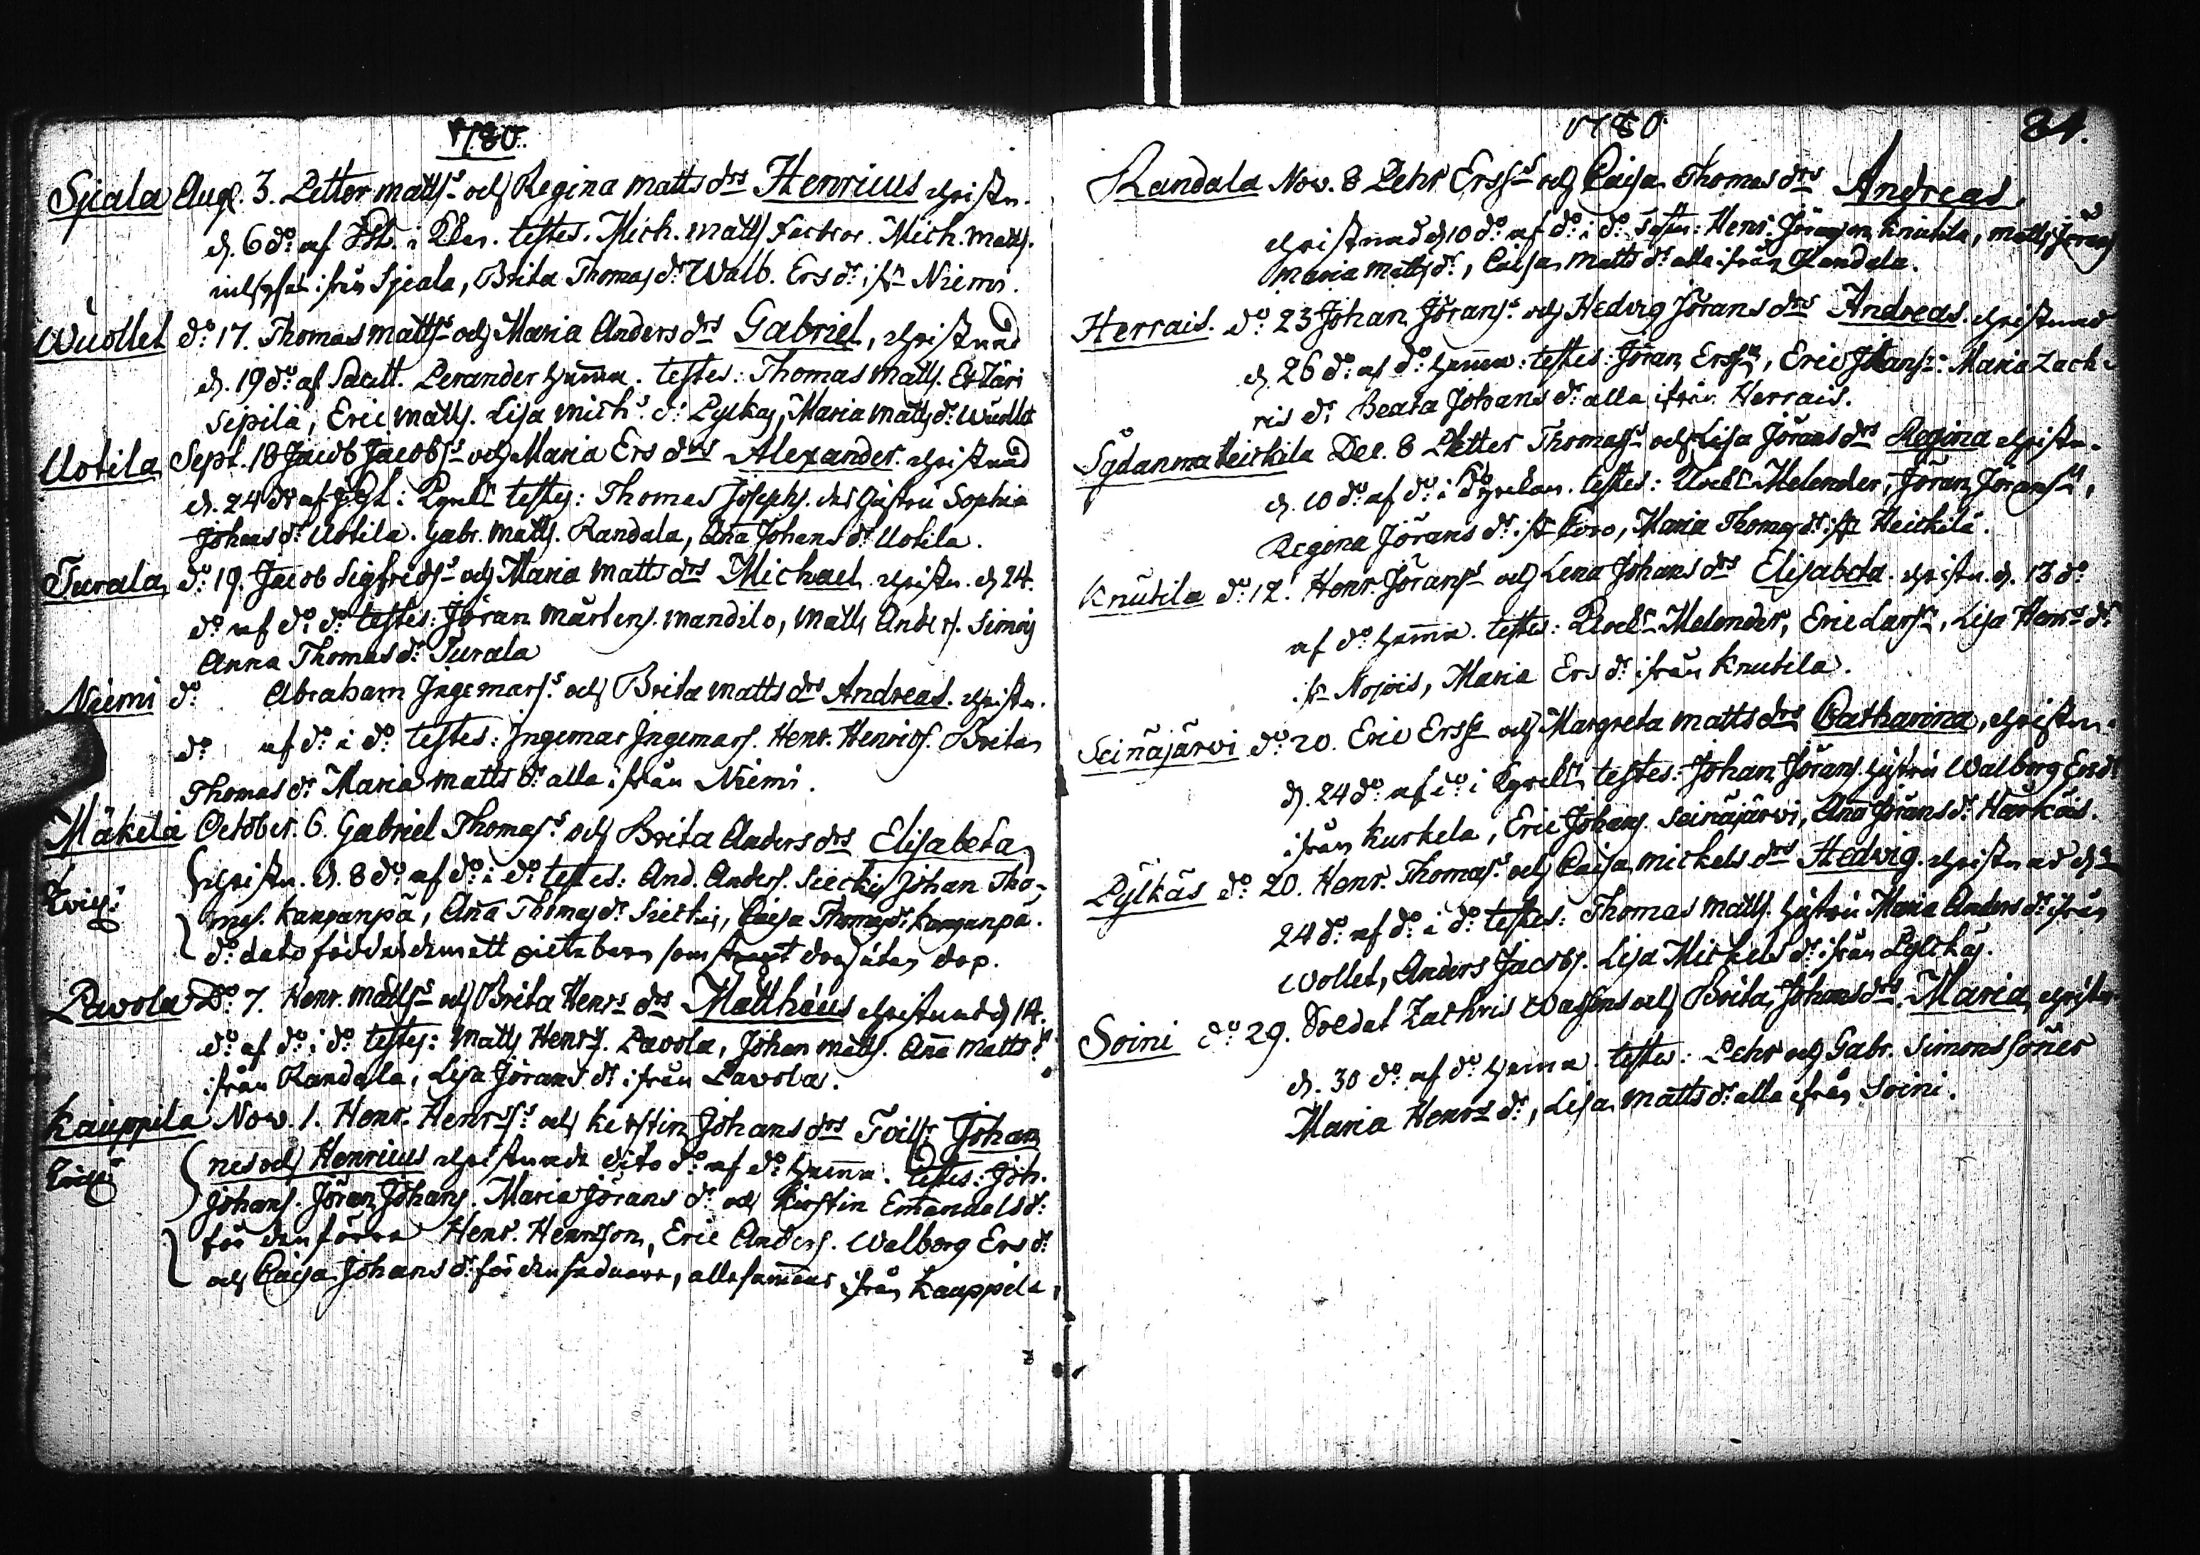 1780.
Sjiala Aug. 3. Petter Matts s. och Regina Matts drs Henricus christn.
d. 6 do af i testes. Mich. Matts Mich. Matts.
ifrån Sjiala, Brita Thomas dr Walb. Ers dr ifr Niemi.
Wuollet do 17. Thomas Matts s. och Maria Anders drs Gabriel, christnad
d. 19 do af Sacell. Perander hemma. testes: Thomas Matts.
Seppilä, Eric Matts. Lisa Michs dr Pylkäs, Maria Matts dr Wuollet
Uotila Sept. 18 Jacob Jacobs s. och Maria Ers drs Alexander. christnad
d. 24 do af testes: Thomas Josephs. des hustru Sophia
Johans dr Uotila. Gabr. Matts. Randala, Aña Johans dr Uotila.
Turala do 19. Jacob Sigfrids s. och Maria Matts drs Michael. christn. d. 24.
do af do i do testes: Jöran Mårtens. Mandilo, Matts Anders. Simois
Anna Thomas dr Turala
Niemi do Abraham Ingemars s. och Brita Matts drs Andreas. christn.
do af do i do testes: Ingemar Ingemars. Henr. Henrics. Brita
Thomas dr Maria Matts dr alla ifrån Niemi.
Mäkelä October. 6. Gabriel Thomas s. och Brita Anders drs Elisabeta
christn. d. 8 do af do i do testes: And. Anders. Siecki, Johan Tho-
mas. Kanganpä, Aña Thomas dr Siecki, Caisa Thomas dr Kanganpä.
do dato föddes dem ett barn som utan dop.
Pavola Do 7. Henr. Matts s. och Brita Henrs drs Matthäus christnad d. 14.
do af do i do testes: Matts Henrs. Pavola, Johan Matts. Aña Matts dr
ifrån Randala, Lisa Jörans dr ifrån Pavola.
Kauppila Nov. 1. Henr. Henrs s. och Kirstin Johans drs Johan
nes och Henricus christnade dito do af do hemma. testes: Joh.
Johans. Jöran Johans. Maria Jörans dr och Kirstin Emanuels dr
för den förra Henr. Henrsson, Eric Anders. Walborg Ers dr
och Caisa Johans dr för den sednare, allesammans ifrån Kauppila.
1780 84.
Randala Nov. 8 Pehr Ers s. och Caisa Thomas drs Andreas.
christnad d. 10 do af do i do testes: Henr. Jörans Knutila, Matts Jörans
Maria Matts dr, Caisa Matts dr alla ifrån Randala.
Herrais. do 23 Johan Jörans s. och Hedvig Jörans drs Andreas. christnad
d. 26 do af do hemma: testes: Jöran Ers sn, Eric Johans: Maria Zach-
ris dr Beata Johans dr alla ifrån Herrais.
Sydänmaheickilä Dec. 8 Petter Thomas s. och Lisa Jörans drs Regina christn.
d. 10 do af do i do testes: Melender, Jöran Jörans sn,
Regina Jörans dr ifr Coro, Maria Thomas dr ifr Heickilä.
Knutila do 12. Henr. Jörans s. och Lena Johans drs Elisabeta. christn. d. 13 do
af do hemma. testes: Melender, Eric Lars sn, Lisa Henrs dr
ifr Nojois, Maria Ers dr ifrån Knutila.
Seinäjärvi do 20. Eric Ers s. och Margreta Matts drs Catharina, christn.
d. 24 do af do i testes: Johan Jörans. hustru Walborg Ers dr
ifrån Kurkela, Eric Johans. Seinäjärvi, Aña Jörans dr Härkäis.
Pylkäs do 20. Henr. Thomas s. och Caisa Mickels drs Hedvig. christnad d.
24 do af do i do testes: Thomas Matts. hustru Maria Anders dr ifrån
Wollet, Anders Jacobs. Lisa Mickels dr ifrån Pylckäs.
Soini do 29. Soldat Zachris och Brita Johans drs Maria, christn.
d. 30 do af do hemma. testes: Pehr och Gabr. Simons söner
Maria Henrs dr, Lisa Matts dr alla ifrån Soini.